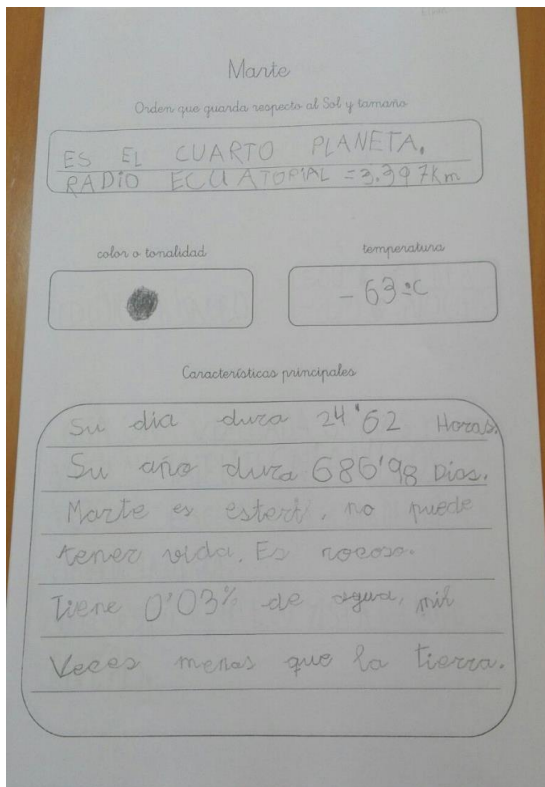 Marte
Orden que guarda respecto al Sol y tamaño
ES EL CUARTO PLANETA.
RADIO ECUATORIAL = 3.397Km
color o tonalidad
temperatura
- 63 ºC
Características principales
Su día dura 24'62 Horas.
Su año dura 686'98 Dias.
Marte es esteril, no puede
tener vida. Es rocoso.
Tiene 0'03% de agua, mil
Veces menas que la tierra.